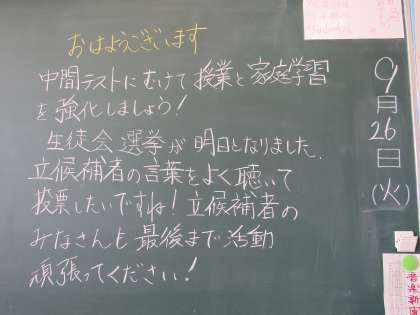 おはようございます
中間テストにむけて授業と家庭学習
を強化しましょう!
生徒会選挙が明日となりました.
立候補者の言葉をよく聴いて
投票したいですね!立候補者の
みなさんも最後まで活動
頑張ってください!
9月26日(火)